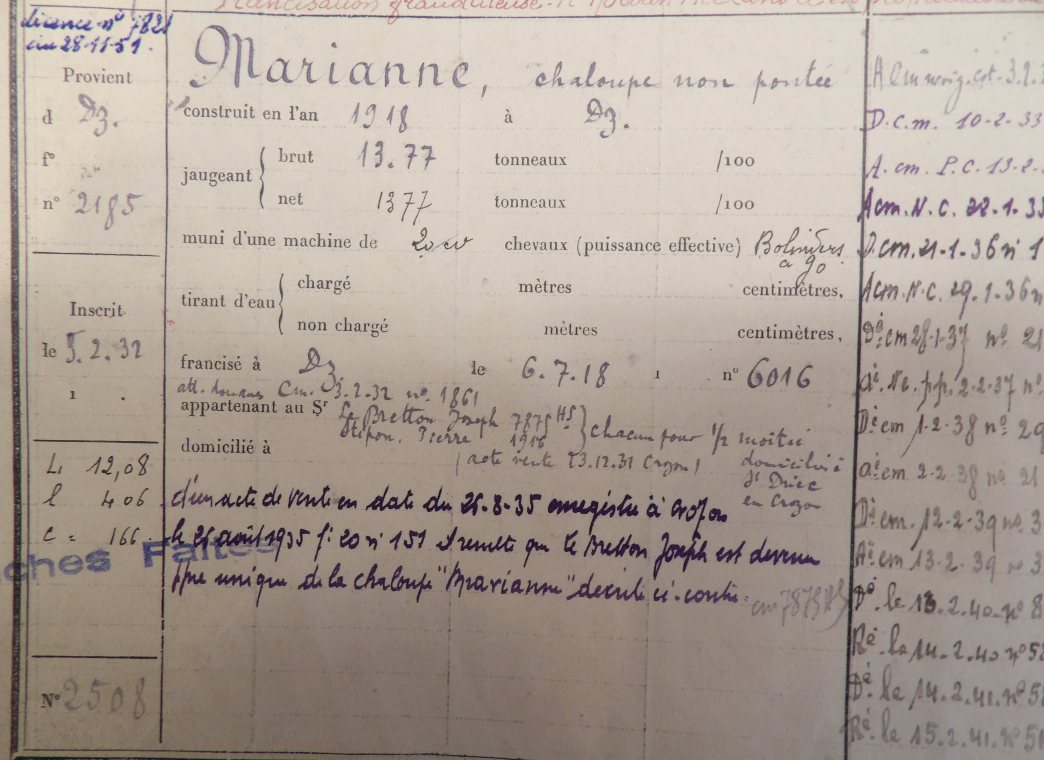 licence nº 7821
du 28-11-51.
Provient
d Dz.
fº
nº 2185
Inscrit
le 5.2.32
L, 12,08
l 4 06
c = 166
ches Faites
Nº 2508
Marianne, chaloupe non pontée
construit en l'an 1918 à Dz.
jaugeant
brut 13.77 tonneaux /100
net 1377 tonneaux /100
muni d'une machine de 20 cv chevaux (puissance effective) Bolinders
à go
tirant d'eau
chargé mètres centimètres,
non chargé mètres centimètres,
francisé à Dz. le 6.7.18 nº 6016
att. douanes Cm. 3.2.32 nº 1861
appartenant au Sr Le Bretton Joseph 7875 HS
Pierre 1916 chacun pour 1/2 moitié
domicilié à (acte vente 23.12.31 Crozon) domiciliés à
en Crozon
d'un acte de vente en date du 26-8-35 enregistré à Crozon
le 26 août 1935 fº 20 nº 151 il resulte que Le Bretton Joseph est devenu
ppre unique de la chaloupe "Marianne" decrite ci-contre. cm 7875 HS
D.c.m. 10-2-33
A. cm. P.C. 13-2-
Acm. N.C. 22-1-35
D.cm. 21-1-36 nº 1
Acm. N.C. 29.1-36 n
Dé: cm 28-1-37 nº 21
aé. Ne. pp. 2-2-37 nº
Dé: cm 1-2-38 nº 29
aé: cm 2-2-38 nº 21
Dé cm. 12-2-39 nº 3
Aé cm 13-2-39 nº 3
Dé. le 13.2.40. nº 8
Ré. le 14.2.40 nº 52
Dé. le 14.2.41. nº 5
Ré. le 15.2.41. nº 5